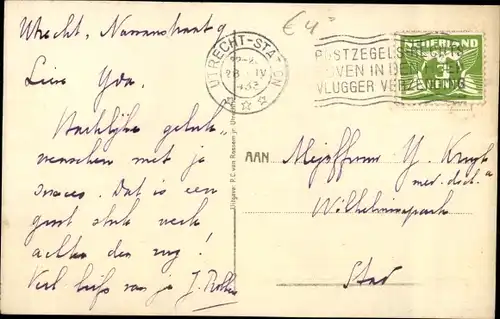 Utrecht, Nassaustraat 9
Lieve Yda,
Hartelijke geluk-
wenschen met je
succes. Dat is een
goot stuk werk
achter den rug!
Veel liefs van je J.
€ 4
UTRECHT-STATION
28 IV
POSTZEGELS
BOVEN IN DE
VLUGGER VERZENDING
NEDERLAND
Uitgave: P.C. van Rossem jr. Utrecht
AAN
Mejuffrouw Y.
med. doct.
Wilhelminapark
Stad